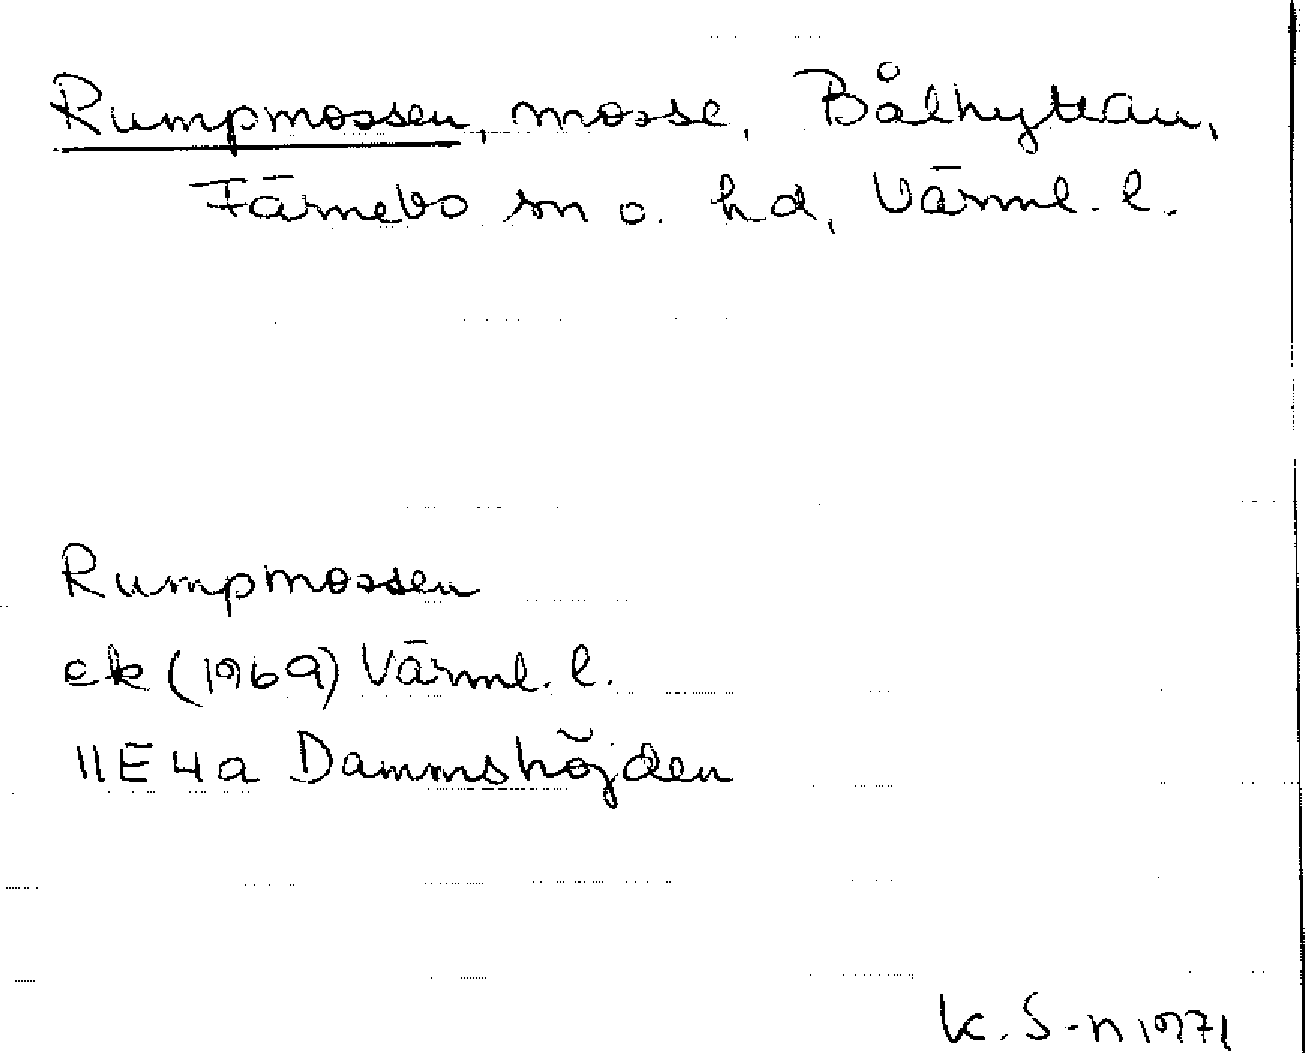 Rumpmossen, mosse, Bålhyttan,
Färnebo sn o. hd, Värml. l.
Rumpmossen
ek (1969) Värml. l.
11E4a Dammshöjden
K. S-n 1971